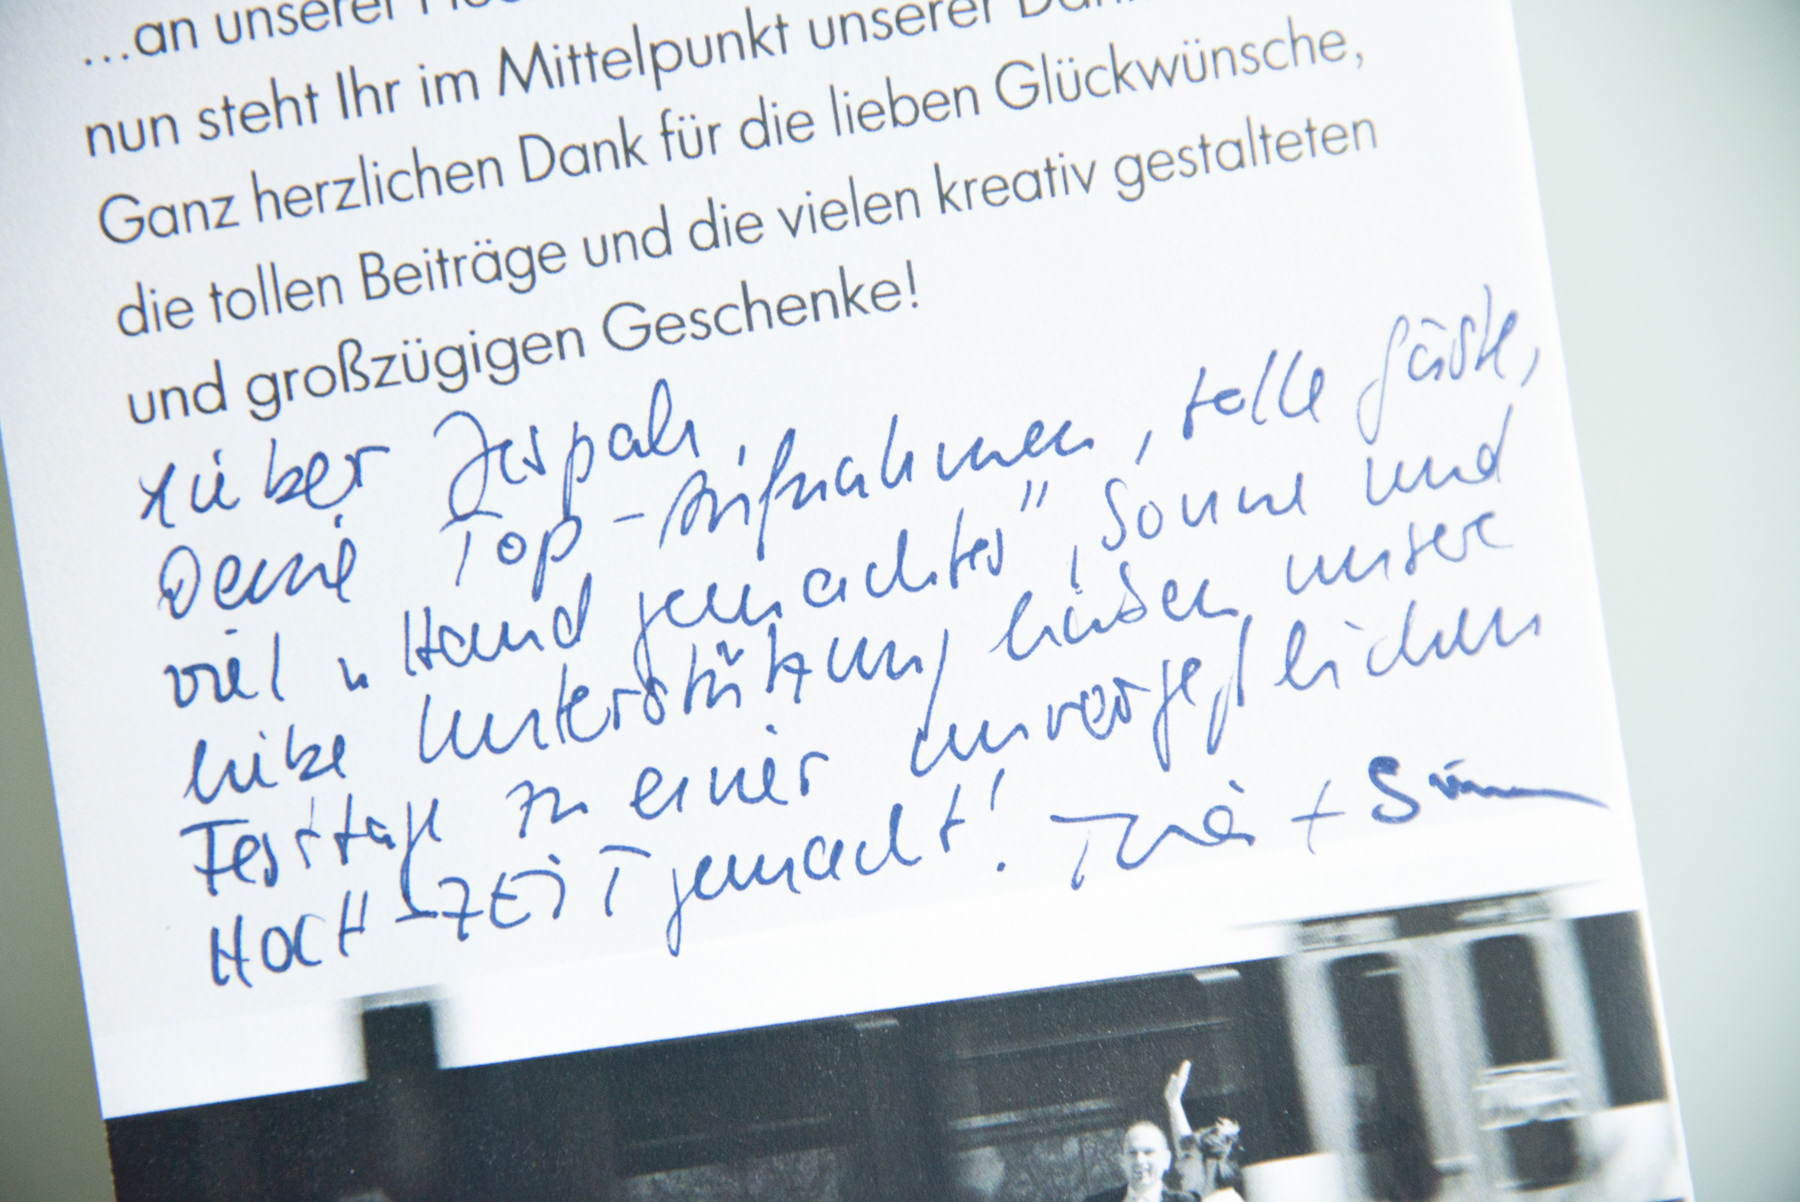 ...an unserer
nun steht Ihr im Mittelpunkt unserer
Ganz herzlichen Dank für die lieben Glückwünsche,
die tollen Beiträge und die vielen kreativ gestalteten
und großzügigen Geschenke!
Lieber
Deine Top-Aufnahmen, tolle Gäste,
viel „Hand gemachtes", Sonne und
liebe Unterstützung haben unsere
Festtage zu einer unvergeßlichen
HOCH-ZEIT gemacht! +